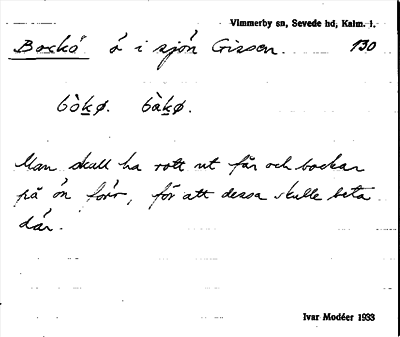 Vimmerby sn, Sevede hd, Kalm. l.
Bockö ö i sjön Grissen. 130
bòkø. bàkø.
Man skall ha rott ut får och bockar
på ön förr, för att dessa skulle beta
där.
Ivar Modéer 1933